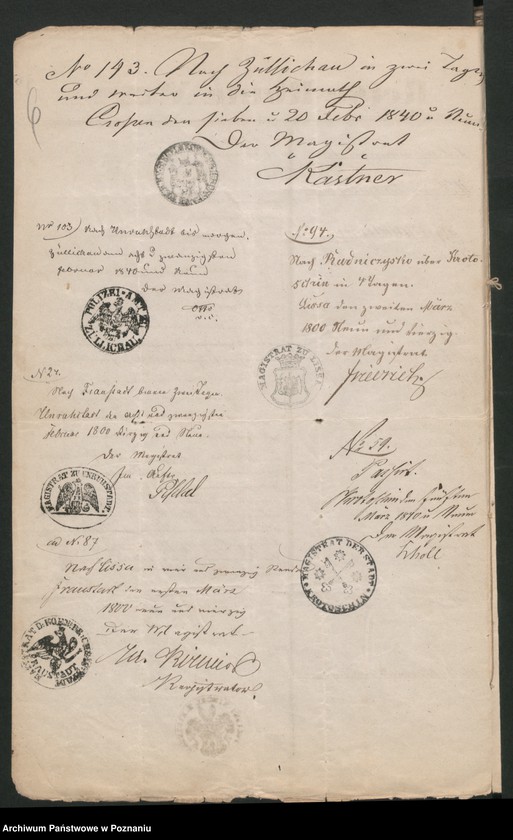 No 143. Nach Züllichau in zwei Tagen
und weiter in die Heimath
Crossen den sieben u 20 Febr 1840 u Neun
Der Magistrat
Kästner
6
No 103 Nach Unruhstadt bis morgen.
Züllichau am acht zwanzigsten
Februar 1840 und Neun
Der Magistrat
POLIZEI-AMT ZU ZÜLLICHAU
No 44.
Nach Rudniczysko über Kroto-
schin in 4 Tagen.
Lissa den zweiten März
1800 Neun und vierzig.
Der Magistrat
MAGISTRAT ZU LISSA
No 24.
Nach Fraustadt binnen zwei Tagen.
Unruhstadt den acht und zwanzigsten
Februar 1800 vierzig und Neun.
Der Magistrat
MAGISTRAT ZU UNRUHSTADT
No 59.
Passirt.
Krotoschin den fünften
März 1840 u Neun
Der Magistrat
Scholz
MAGISTRAT DER STADT KROTOSCHIN
ad No 87
Nach Lissa in vier und zwanzig Stunden
Fraustadt den ersten März
1800 neun und vierzig
Der Magistrat
Registrator.
FRAUSTADT
Archiwum Państwowe w Poznaniu